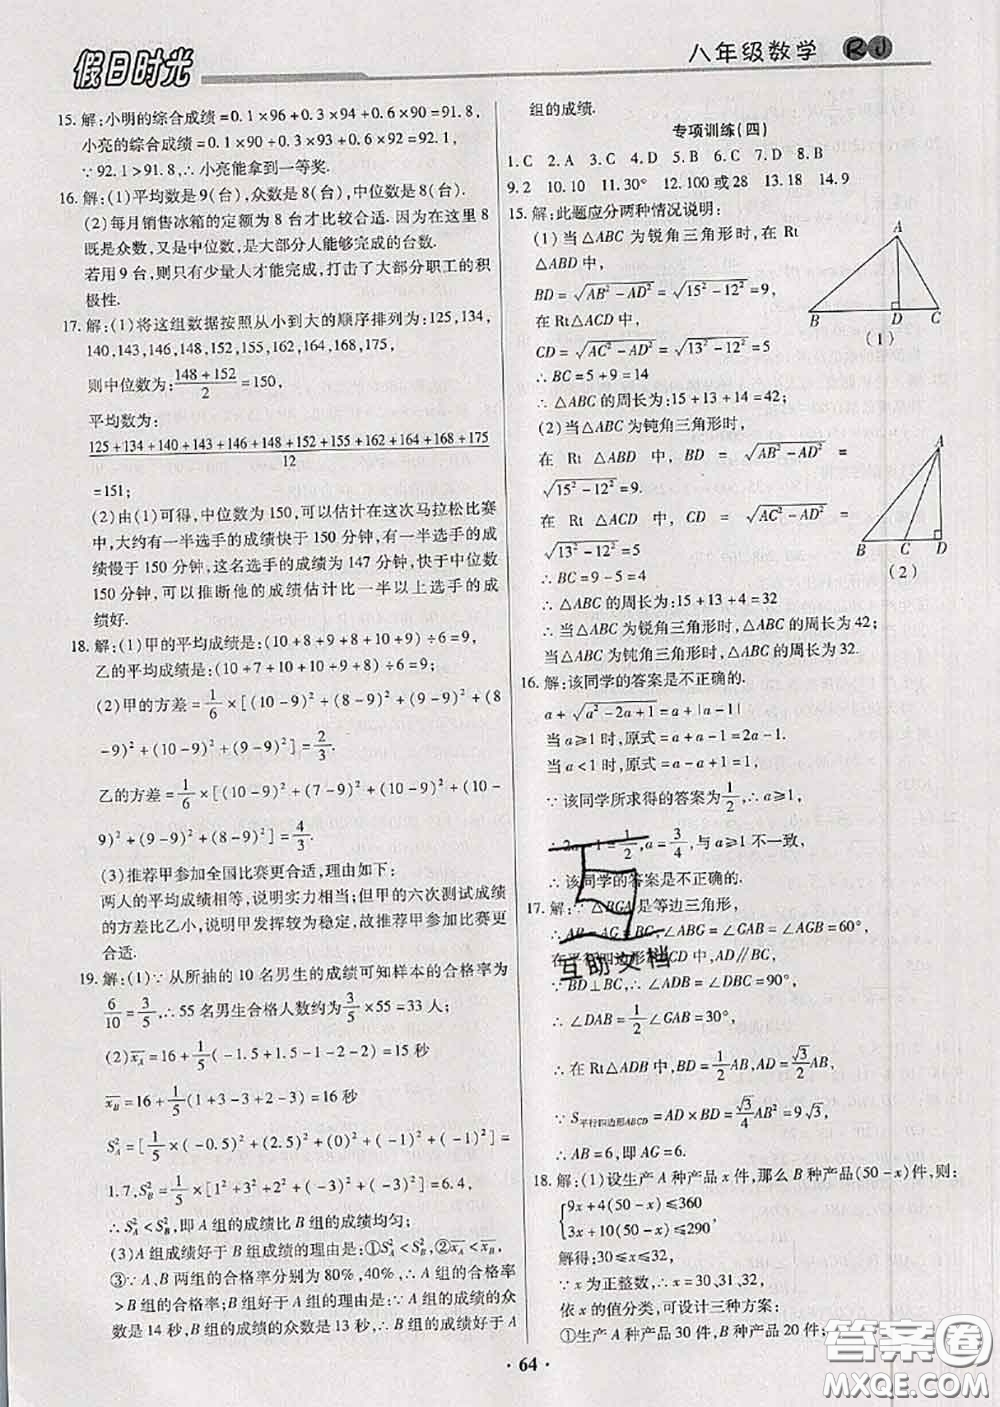 假日时光
八年级数学 RJ
15.解:小明的综合成绩=0.1×96+0.3×94+0.6×90=91.8,
小亮的综合成绩=0.1×90+0.3×93+0.6×92=92.1,
∵92.1>91.8,∴小亮能拿到一等奖.
16.解:(1)平均数是9(台),众数是8(台),中位数是8(台).
(2)每月销售冰箱的定额为8台才比较合适.因为在这里8
既是众数,又是中位数,是大部分人能够完成的台数.
若用9台,则只有少量人才能完成,打击了大部分职工的积
极性.
17.解:(1)将这组数据按照从小到大的顺序排列为:125,134,
140,143,146,148,152,155,162,164,168,175,
则中位数为:(148+152)/2=150,
平均数为:
(125+134+140+143+146+148+152+155+162+164+168+175)/12
=151;
(2)由(1)可得,中位数为150,可以估计在这次马拉松比赛
中,大约有一半选手的成绩快于150分钟,有一半选手的成
绩慢于150分钟,这名选手的成绩为147分钟,快于中位数
150分钟,可以推断他的成绩估计比一半以上选手的成
绩好.
18.解:(1)甲的平均成绩是:(10+8+9+8+10+9)÷6=9,
乙的平均成绩是:(10+7+10+10+9+8)÷6=9;
(2)甲的方差=1/6×[(10-9)²+(8-9)²+(9-9)²+(8
-9)²+(10-9)²+(9-9)²]=2/3.
乙的方差=1/6×[(10-9)²+(7-9)²+(10-9)²+(10-
9)²+(9-9)²+(8-9)²]=4/3.
(3)推荐甲参加全国比赛更合适,理由如下:
两人的平均成绩相等,说明实力相当;但甲的六次测试成绩
的方差比乙小,说明甲发挥较为稳定,故推荐甲参加比赛更
合适.
19.解:(1)∵从所抽的10名男生的成绩可知样本的合格率为
6/10=3/5,∴55名男生合格人数约为3/5×55=33人;
(2)x_A=16+1/5(-1.5+1.5-1-2-2)=15秒
x_B=16+1/5(1+3-3+2-3)=16秒
S²_A=[1/5×(-0.5)²+(2.5)²+(0)²+(-1)²+(-1)²]=
1.7,S²_B=1/5×[1²+3²+2²+(-3)²+(-3)²]=6.4,
∴S²_A<S²_B,即A组的成绩比B组的成绩均匀;
(3)A组成绩好于B组成绩的理由是:①S²_A<S²_B,②x_A>x_B.
③∵A、B两组的合格率分别为80%,40%,∴A组的合格率
>B组的合格率;B组好于A组的理由是:∵A组的成绩的众
数是14秒,B组的成绩的众数是13秒,∴B组的成绩好于A
组的成绩.
专项训练(四)
1.C 2.A 3.A 4.D 5.B 6.C 7.D 8.B
9.2 10.10 11.30° 12.100或28 13.18 14.9
15.解:此题应分两种情况说明:
(1)当△ABC为锐角三角形时,在Rt
△ABD中,
BD=√(AB²-AD²)=√(15²-12²)=9,
在Rt△ACD中,
CD=√(AC²-AD²)=√(13²-12²)=5
∴BC=5+9=14
∴△ABC的周长为:15+13+14=42;
(2)当△ABC为钝角三角形时,
在Rt△ABD中,BD=√(AB²-AD²)=
√(15²-12²)=9.
在Rt△ACD中,CD=√(AC²-AD²)=
√(13²-12²)=5
∴BC=9-5=4
∴△ABC的周长为:15+13+4=32
∴当△ABC为锐角三角形时,△ABC的周长为42;
当△ABC为钝角三角形时,△ABC的周长为32.
A
B D C
(1)
A
B C D
(2)
16.解:该同学的答案是不正确的.
a+√(a²-2a+1)=a+|a-1|
当a≥1时,原式=a+a-1=2a-1.
当a<1时,原式=a-a+1=1,
∵该同学所求得的答案为1/2,∴a≥1,
∴2a-1=1/2,a=3/4,与a≥1不一致,
∴该同学的答案是不正确的.
17.解:∵△BGA是等边三角形,
∴AB=AG=BG,∠ABG=∠GAB=∠AGB=60°,
在平行四边形ABCD中,
∵BD⊥BC,∴∠ADB=∠DBC=90°,
∴∠DAB=1/2∠GAB=30°,
∴在Rt△ADB中,BD=1/2AB,AD=√3/2AB,
∵S平行四边形ABCD=AD×BD=√3/4AB²=9√3,
∴AB=6,即AG=6.
18.解:(1)设生产A种产品x件,那么B种产品(50-x)件,则:
{9x+4(50-x)≤360
3x+10(50-x)≤290,
解得:30≤x≤32,
∵x为正整数,∴x=30、31、32,
依x的值分类,可设计三种方案:
①生产A种产品30件,B种产品20件;
互助文档
· 64 ·
答案圈
MXQE.COM